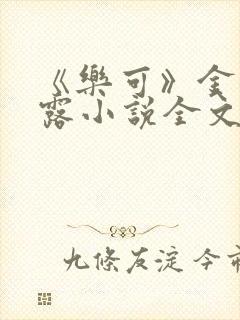 《樂可》金
露小說全文
九條友淀 今市